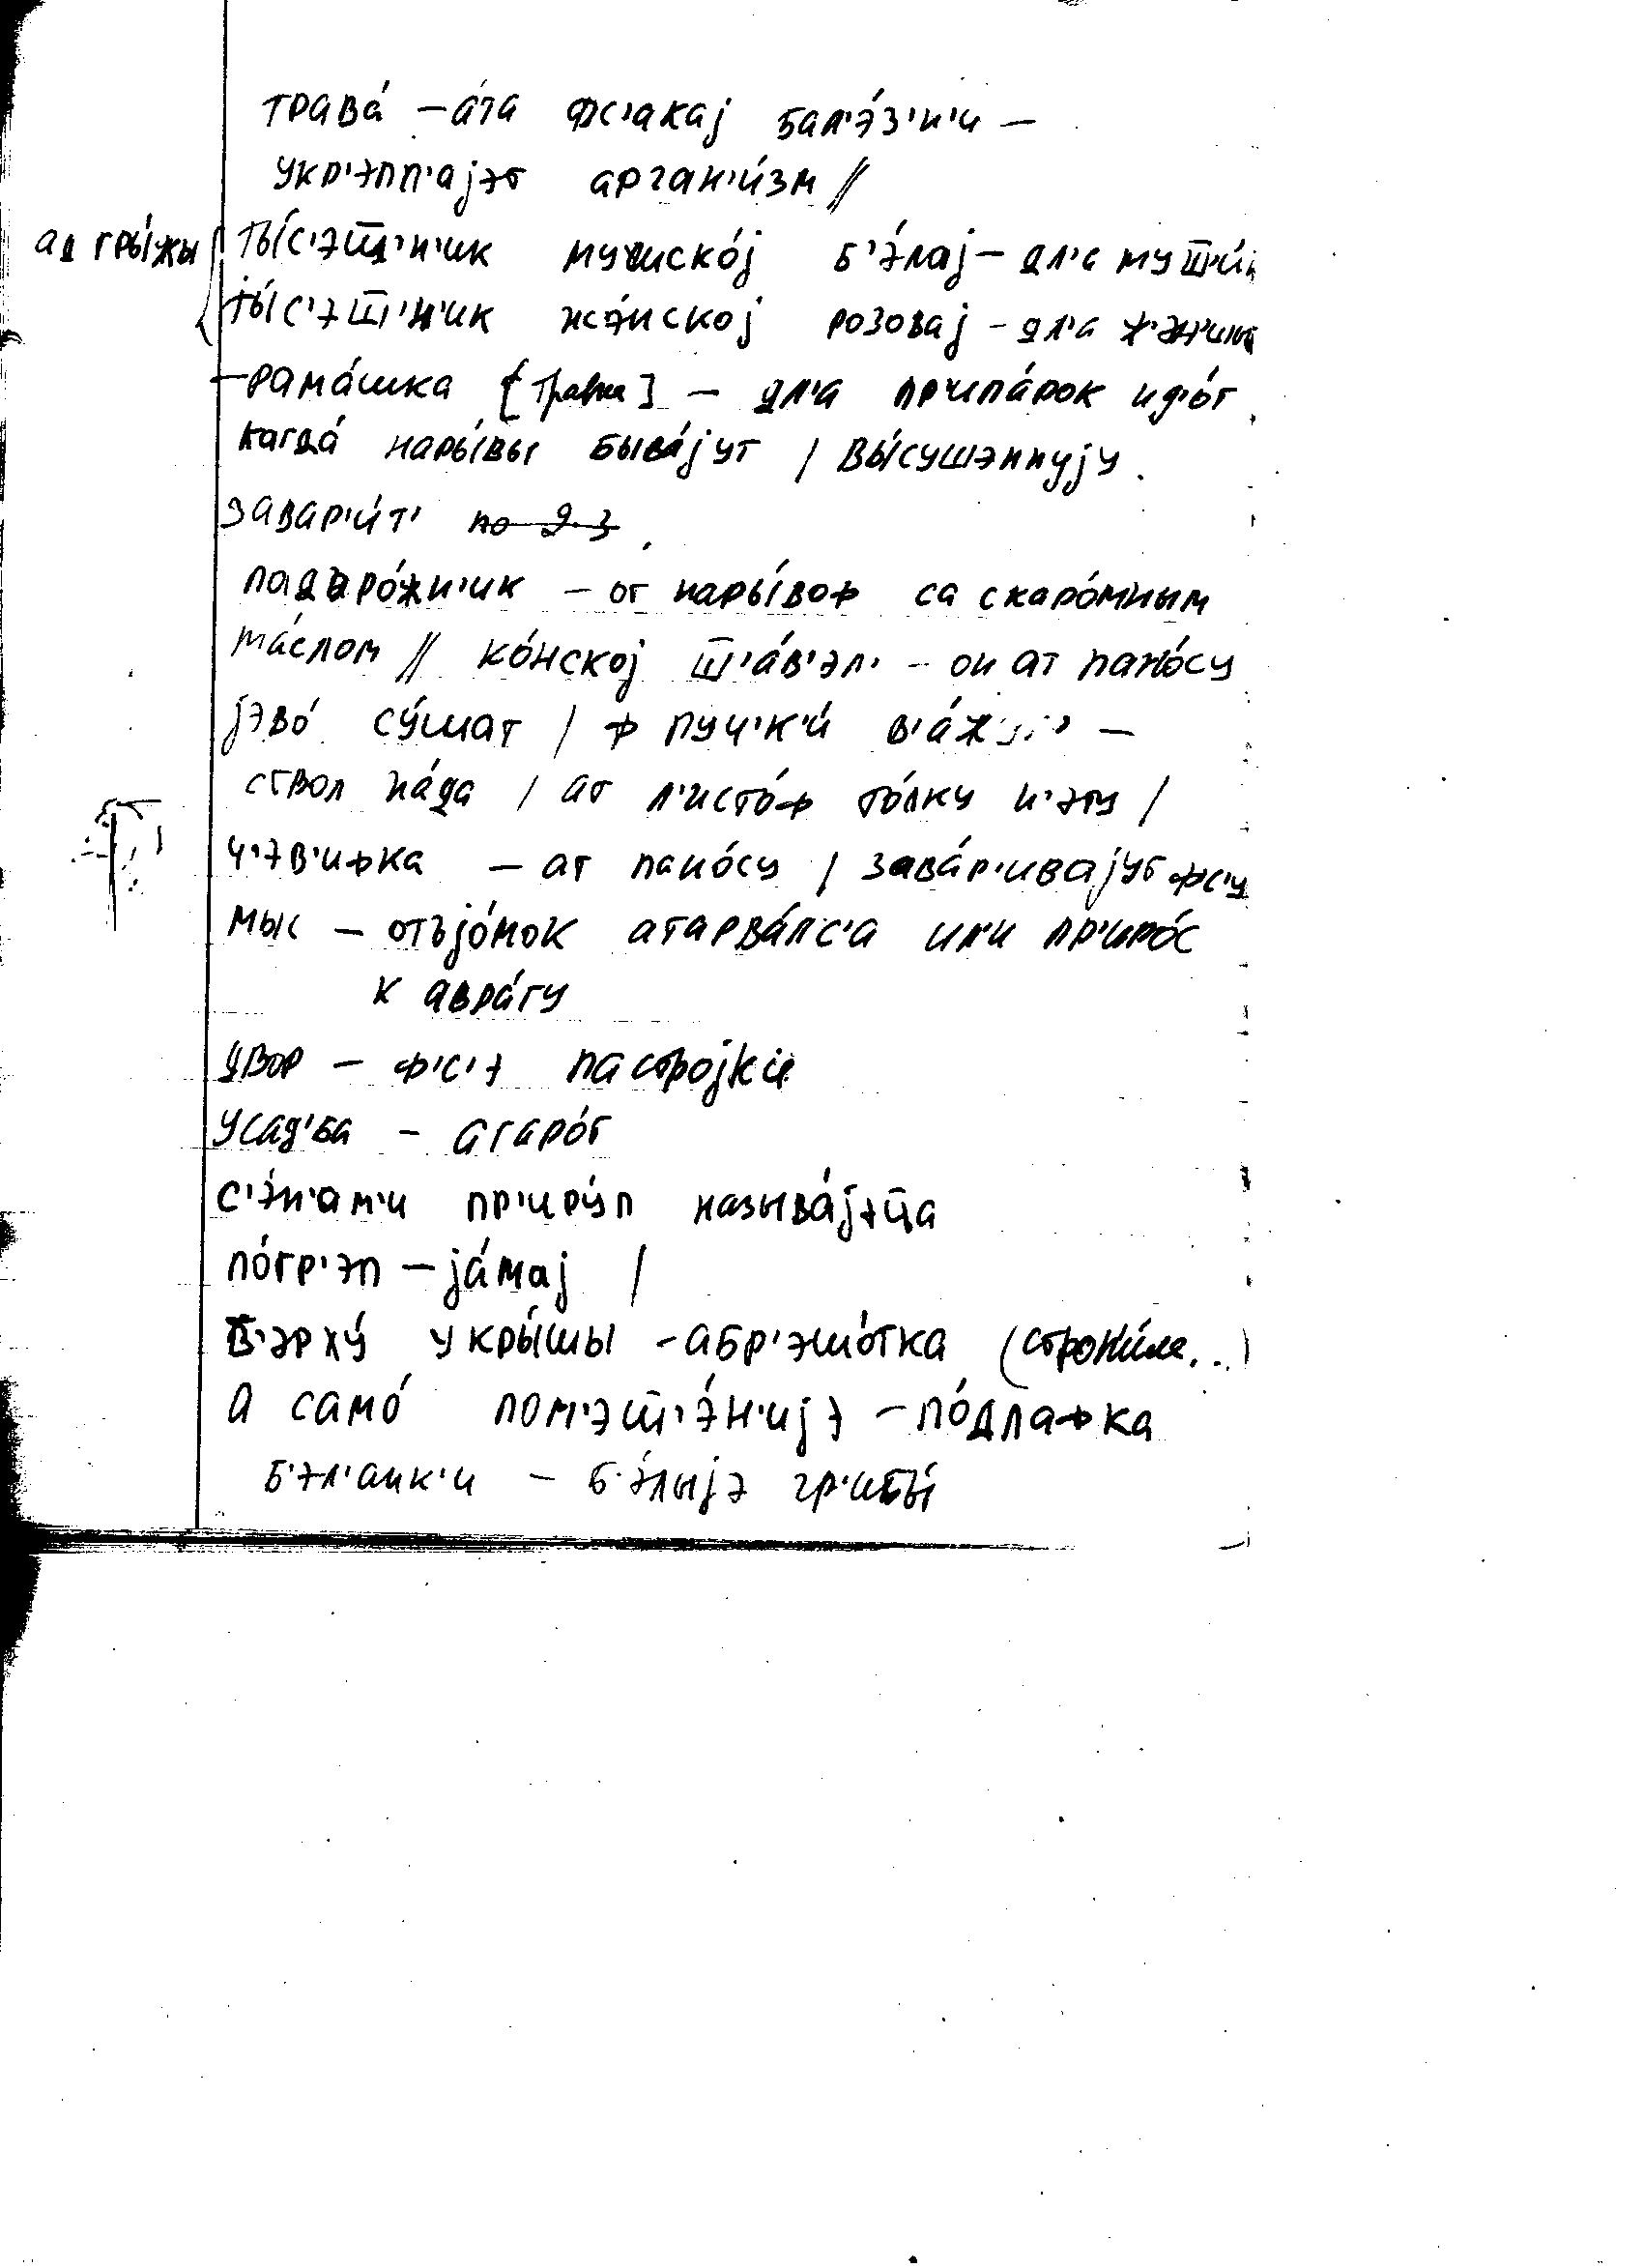 трава́ – а́та фс'акај бал'э́з'н'и –
укр'эпл'ајэт арган'и́зм //
ад гры́жы
ты́с'эш̅'н'ик мушско́ј б'э́лај – дл'а муш̅'и́н
ты́с'эш̅'н'ик жэ́нској розовај – дл'а
рама́шка [трава] – дл'а припа́рок ид'о́т
када́ нары́вы быва́јут / вы́сушэннују
завар'и́т' по 2-3
падаро́жн'ик – от нары́воф са скаро́мным
ма́слом // ко́нској ш̅'а́в'эл' – он ат пано́су
јэво́ су́шат / ф пуч'к'и́ –
ствол на́да / ат л'исто́ф то́лку н'эту /
ч'эв'ифка – ат пано́су / зава́р'ивајут фс'у
мыс – отъјо́мок атарва́лс'а ил'и пр'иро́с
к авра́гу
двор – ф'с'э пастројки
усад'ба – агаро́т
с'э́н'ам'и пр'иру́п называ́јэц̅а
по́гр'эп – јáмај /
в'эрху́ у кры́шы – абр'эшо́тка (строп'и́ла...)
а само́ пом'эш̅'э́н'ијэ – по́длафка
б'эл'анк'и – б'э́лыјэ гр'ибы́